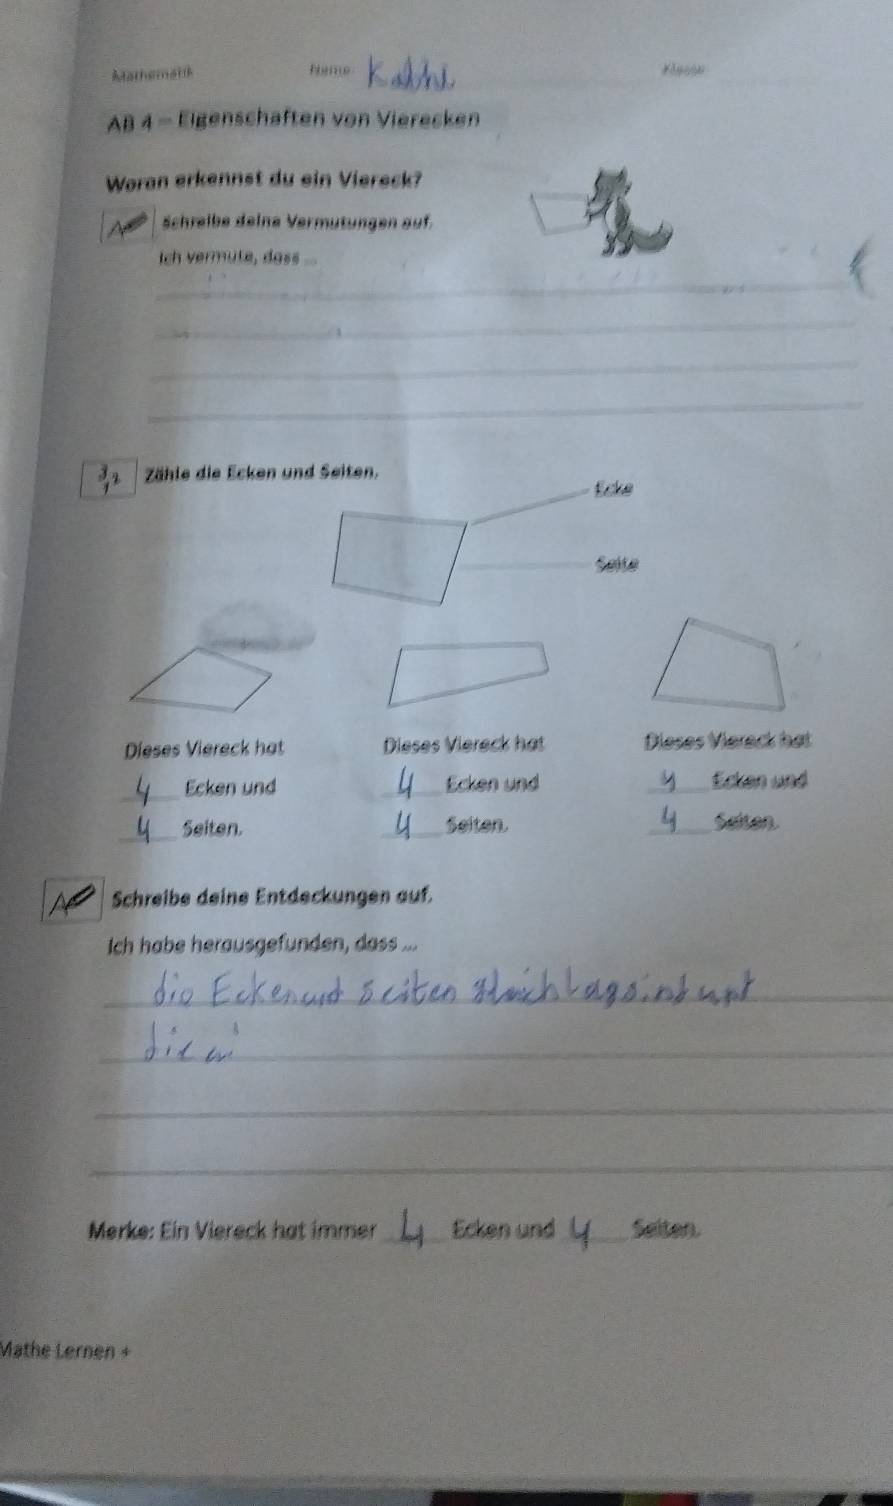 Mathematik Name: Kathi Klasse:
AB 4 – Eigenschaften von Vierecken
Woran erkennst du ein Viereck?
Schreibe deine Vermutungen auf.
Ich vermute, dass ...
3 2 1 Zähle die Ecken und Seiten.
Ecke
Seite
Dieses Viereck hat Dieses Viereck hat Dieses Viereck hat
4 Ecken und 4 Ecken und 4 Ecken und
4 Seiten. 4 Seiten. 4 Seiten.
Schreibe deine Entdeckungen auf.
Ich habe herausgefunden, dass ...
die Ecken und Seiten sind unt
die
Merke: Ein Viereck hat immer 4 Ecken und 4 Seiten.
Mathe Lernen +